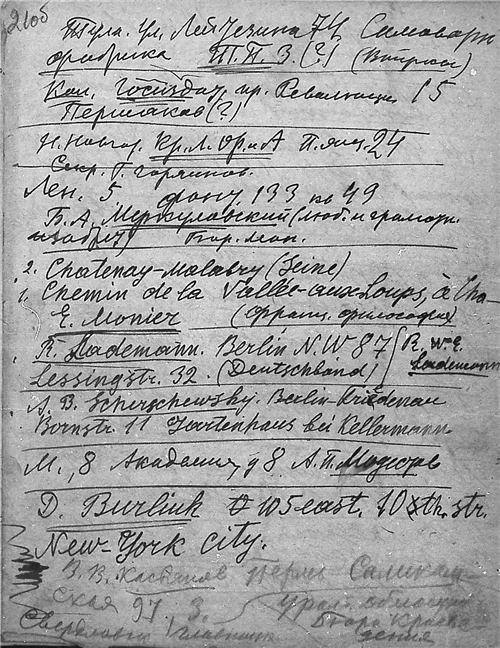 210б
Тула. Ул. Лейтезина 74 Самоварн
фабрика Т.П.З. (?) (Витрисы)
Кал. Госиздат, пр. Революции 15
Першаков (?)
Н. Новгор. Кр. Л. Ор. и А П. ящ. 24
Секр. Г. Горяинов.
Лен. 5 фонт. 133 кв 49
Б. А. Меркуловский (люб. и грамотн.
изобрет)
2. Chatenay-Malabry (Seine)
1. Chemin de la Vallée-aux-Loups, à Cha
E. Monier (франц. философия)
R. Lademann. Berlin N.W 87 R. W. E.
Lessingstr. 32. (Deutschland) Lademann
A. B. Scherschewsky. Berlin-Friedenau
Bornstr. 11 Gartenhaus bei Kellermann
М., 8 Академия, д 8 А. П.
D. Burliuk 105 east. 10th. str.
New-York city.
В. В. Пермь Соликам-
ская 97. 3. Урал. област
Свердловск Главн Бюро Краеве
дения